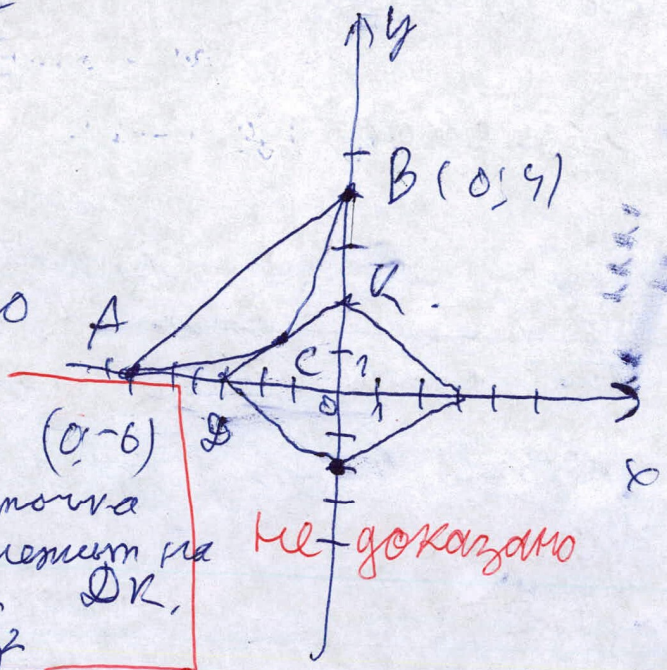 y
B (0; 4)
K
A
C
1
0
1
(0-6)
D
x
точка
лежит на
DK,
не доказано